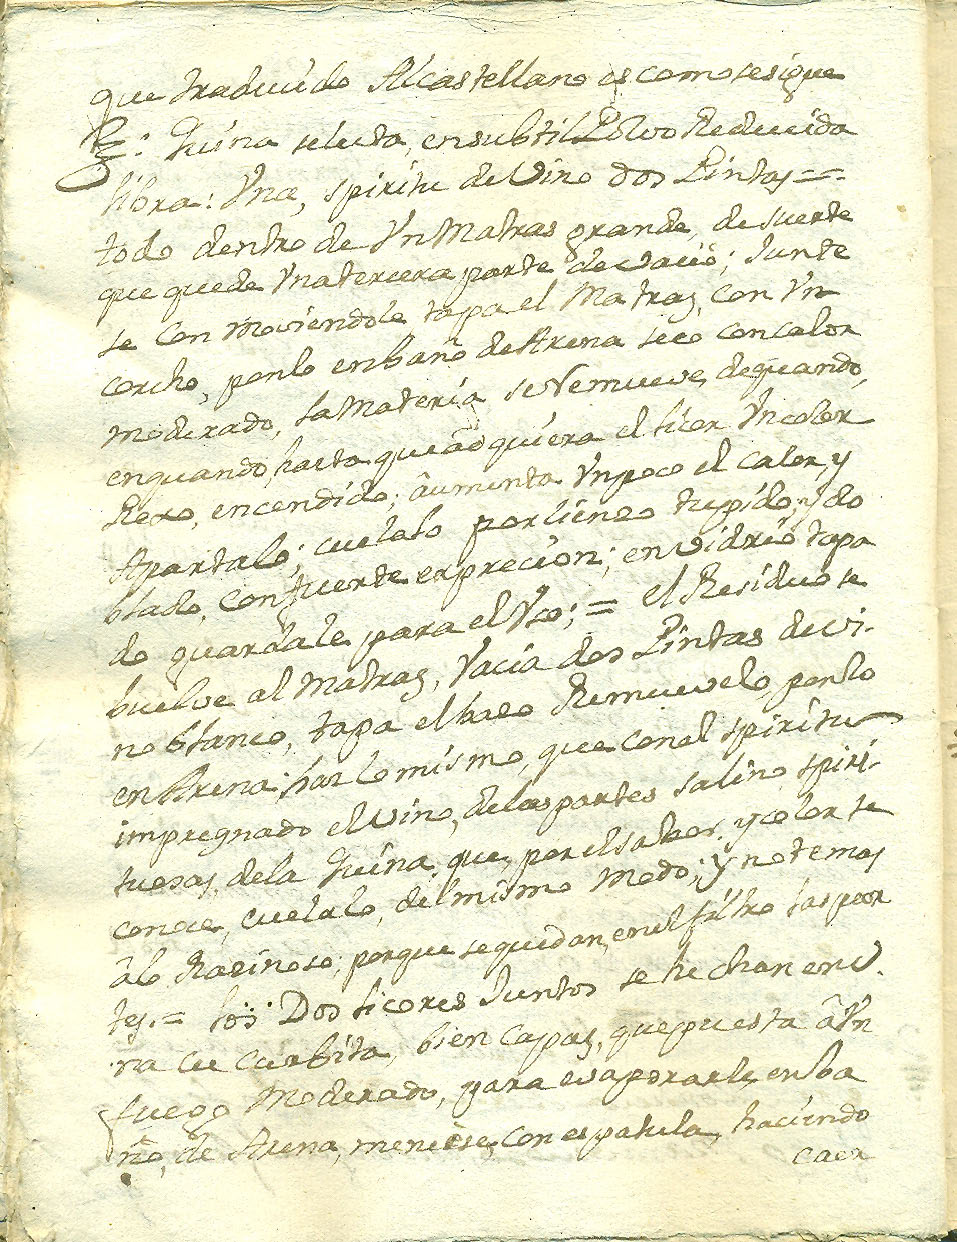 que traducido Alcastellano es como se sigue
Rz.: Quina selecta, en subtil Polvo Reducida
libra: Vna, spiritu de Vino dos Pintas ==
todo dentro de Vn Matras grande, de suerte
que quede Vna tercera parte de vacio; Junte
se Con moviendole tapa el Matras, con Vn
corcho, ponlo en baño de Arena seco con calor
moderado, la Materia se Remueve, de quando,
en quando, hasta que adquiera el licor Vn color
Roxo, encendido; âumenta Vn poco el calor, y
Apartalo; cuelalo por lienzo tupido, y do
blado, con fuerte exprecion; en vidrio tapa
do guardale para el Vso; = el Residuo se
buelve al Matras, Vacia dos Pintas de vi-
no blanco, tapa el baso Remuevelo, ponlo
en Arena; haz lo mismo, que con el spiritu
impregnado el vino, de las partes salino, spiri-
tuosas, de la Quina, que, por el sabor, y color se
conoce, cuelalo, del mismo modo; y no temas
âlo Racinoso; porque se quedan, en el filtro las por
tes. = los Dos licores Juntos se hechan en v-
na cucurbita, bien Capas, que puesta â Vn
fuego Moderado, para evaporarle, en ba
ño, de Arena, meneese, con espatula, haciendo
caer